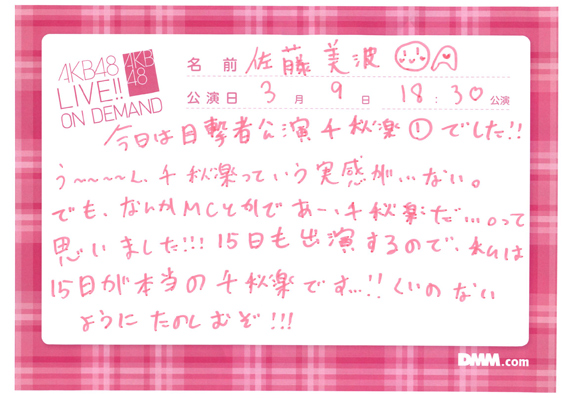 AKB48
LIVE!!
ON DEMAND
AKB
48
名前 佐藤美波
公演日 3月9日 18:30公演
今日は目撃者公演千秋楽①でした!!
う〜〜〜〜ん、千秋楽っていう実感が…ない。
でも、なんかMCとかであー、千秋楽だ…。って
思いました!!! 15日も出演するので、私は
15日が本当の千秋楽です…!! くいのない
ようにたのしむぞ!!!
DMM.com